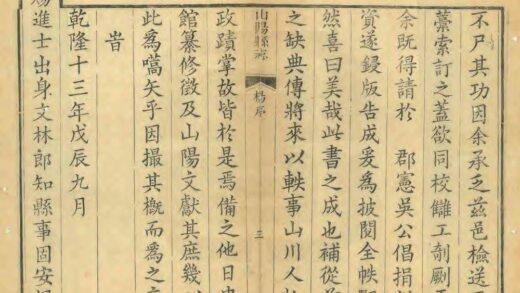 不尸其功因余承乏茲邑檢送
藁索訂之蓋欲同校讎工剞劂
余既得請於 郡憲吳公倡捐
資遂鋟版告成爰為披閱全帙
然喜曰美哉此書之成也補從前
之缺典傳將來以軼事山川人物
山陽縣志 楊序 三
政蹟掌故皆於是焉備之他日史
館纂修徵及山陽文獻其庶幾以
此為嚆矢乎因撮其概而為之序
旹
乾隆十三年戊辰九月
賜進士出身文林郎知縣事固安楊